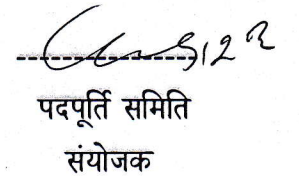 पदपूर्ति समिति
संयोजक